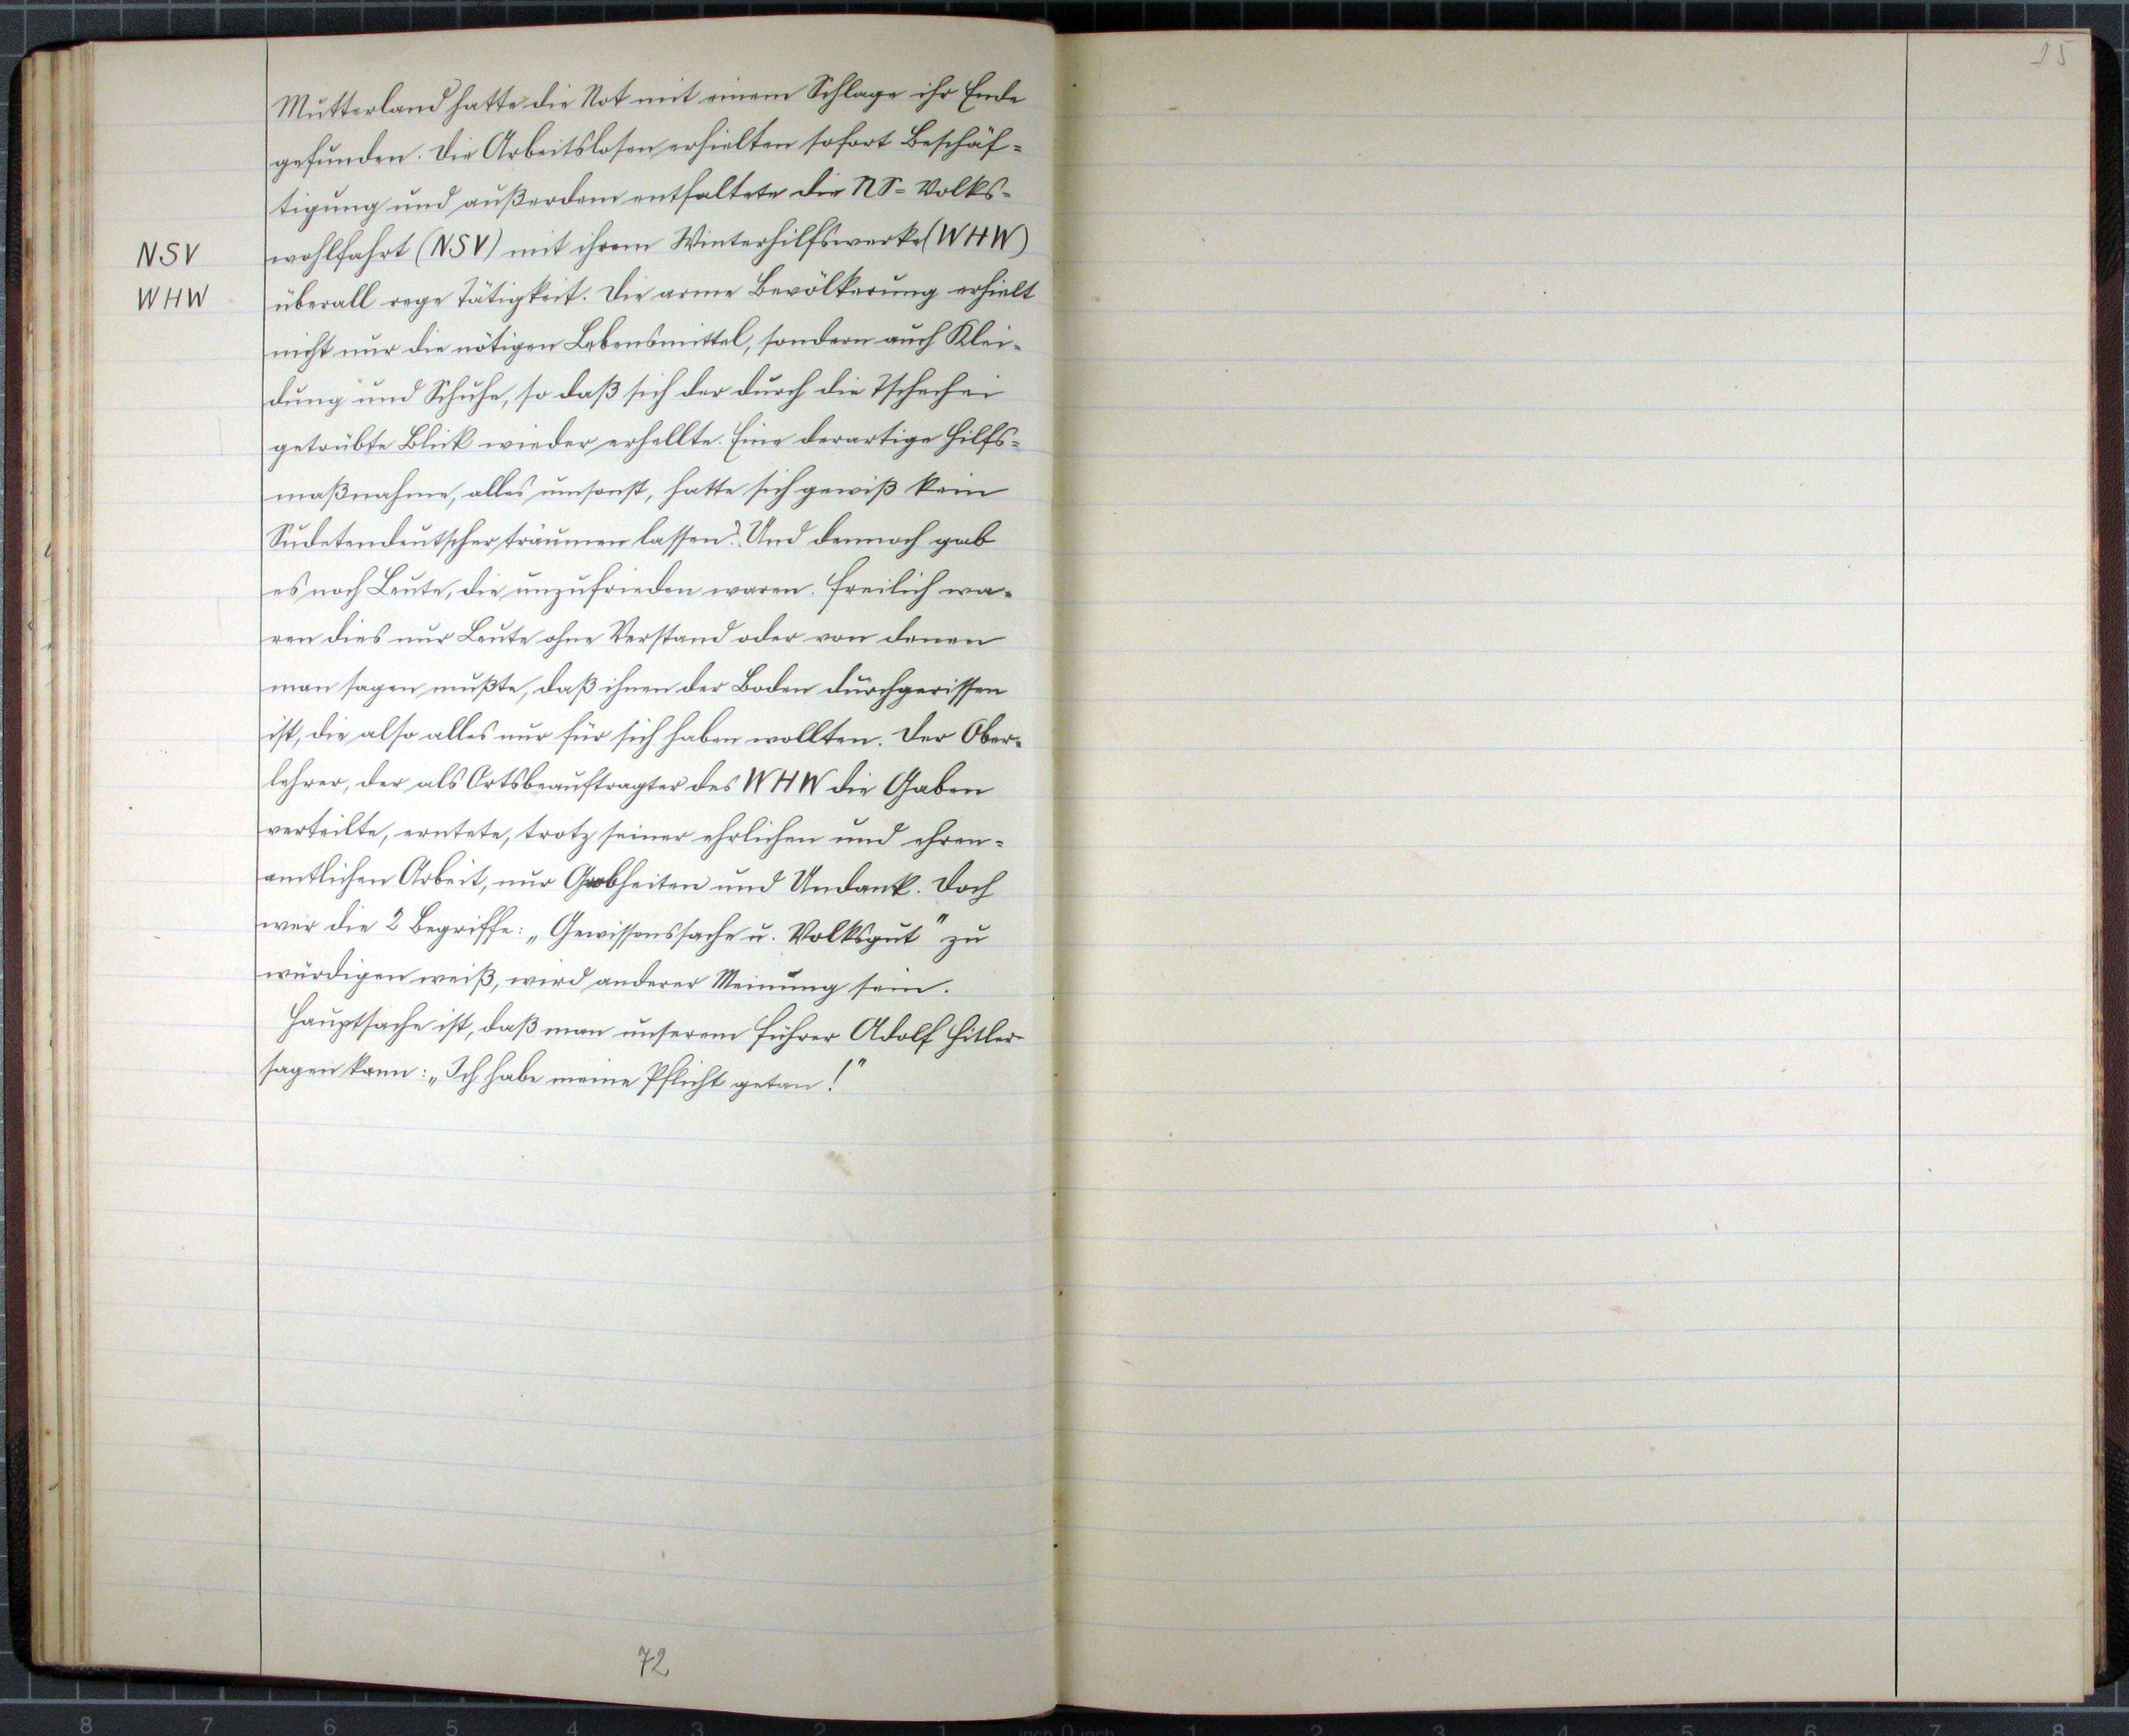 Mutterland hatte die Not mit einem Schlage ihr Ende
gefunden. Die Arbeitslosen erhielten sofort Beschäf=
tigung und außerdem entfaltete die NS=Volks=
NSV
wohlfahrt (NSV) mit ihrem Winterhilfswerke (WHW)
WHW
überall rege Tätigkeit. Die arme Bevölkerung erhielt
nicht nur die nötigen Lebensmittel, sondern auch Klei-
dung und Schuhe, so daß sich der durch die Tschechei
getrübte Blick wieder erhellte. Eine derartige Hilfs=
maßnahme, alles umsonst, hatte sich gewiß kein
Sudetendeutscher träumen lassen? Und dennoch gab
es noch Leute, die unzufrieden waren. Freilich wa-
ren dies nur Leute ohne Verstand oder von denen
man sagen mußte, daß ihnen der Boden durchgerissen
ist, die also alles nur für sich haben wollten. Der Ober-
lehrer, der als Ortsbeauftragter des WHW die Gaben
verteilte, erntete, trotz seiner ehrlichen und ehren=
amtlichen Arbeit, nur Grobheiten und Undank. Doch
wer die 2 Begriffe: „Gewissenssache u. Volksgut" zu
würdigen weiß, wird anderer Meinung sein.
Hauptsache ist, daß man unserem Führer Adolf Hitler
sagen kann: „Ich habe meine Pflicht getan!"
72